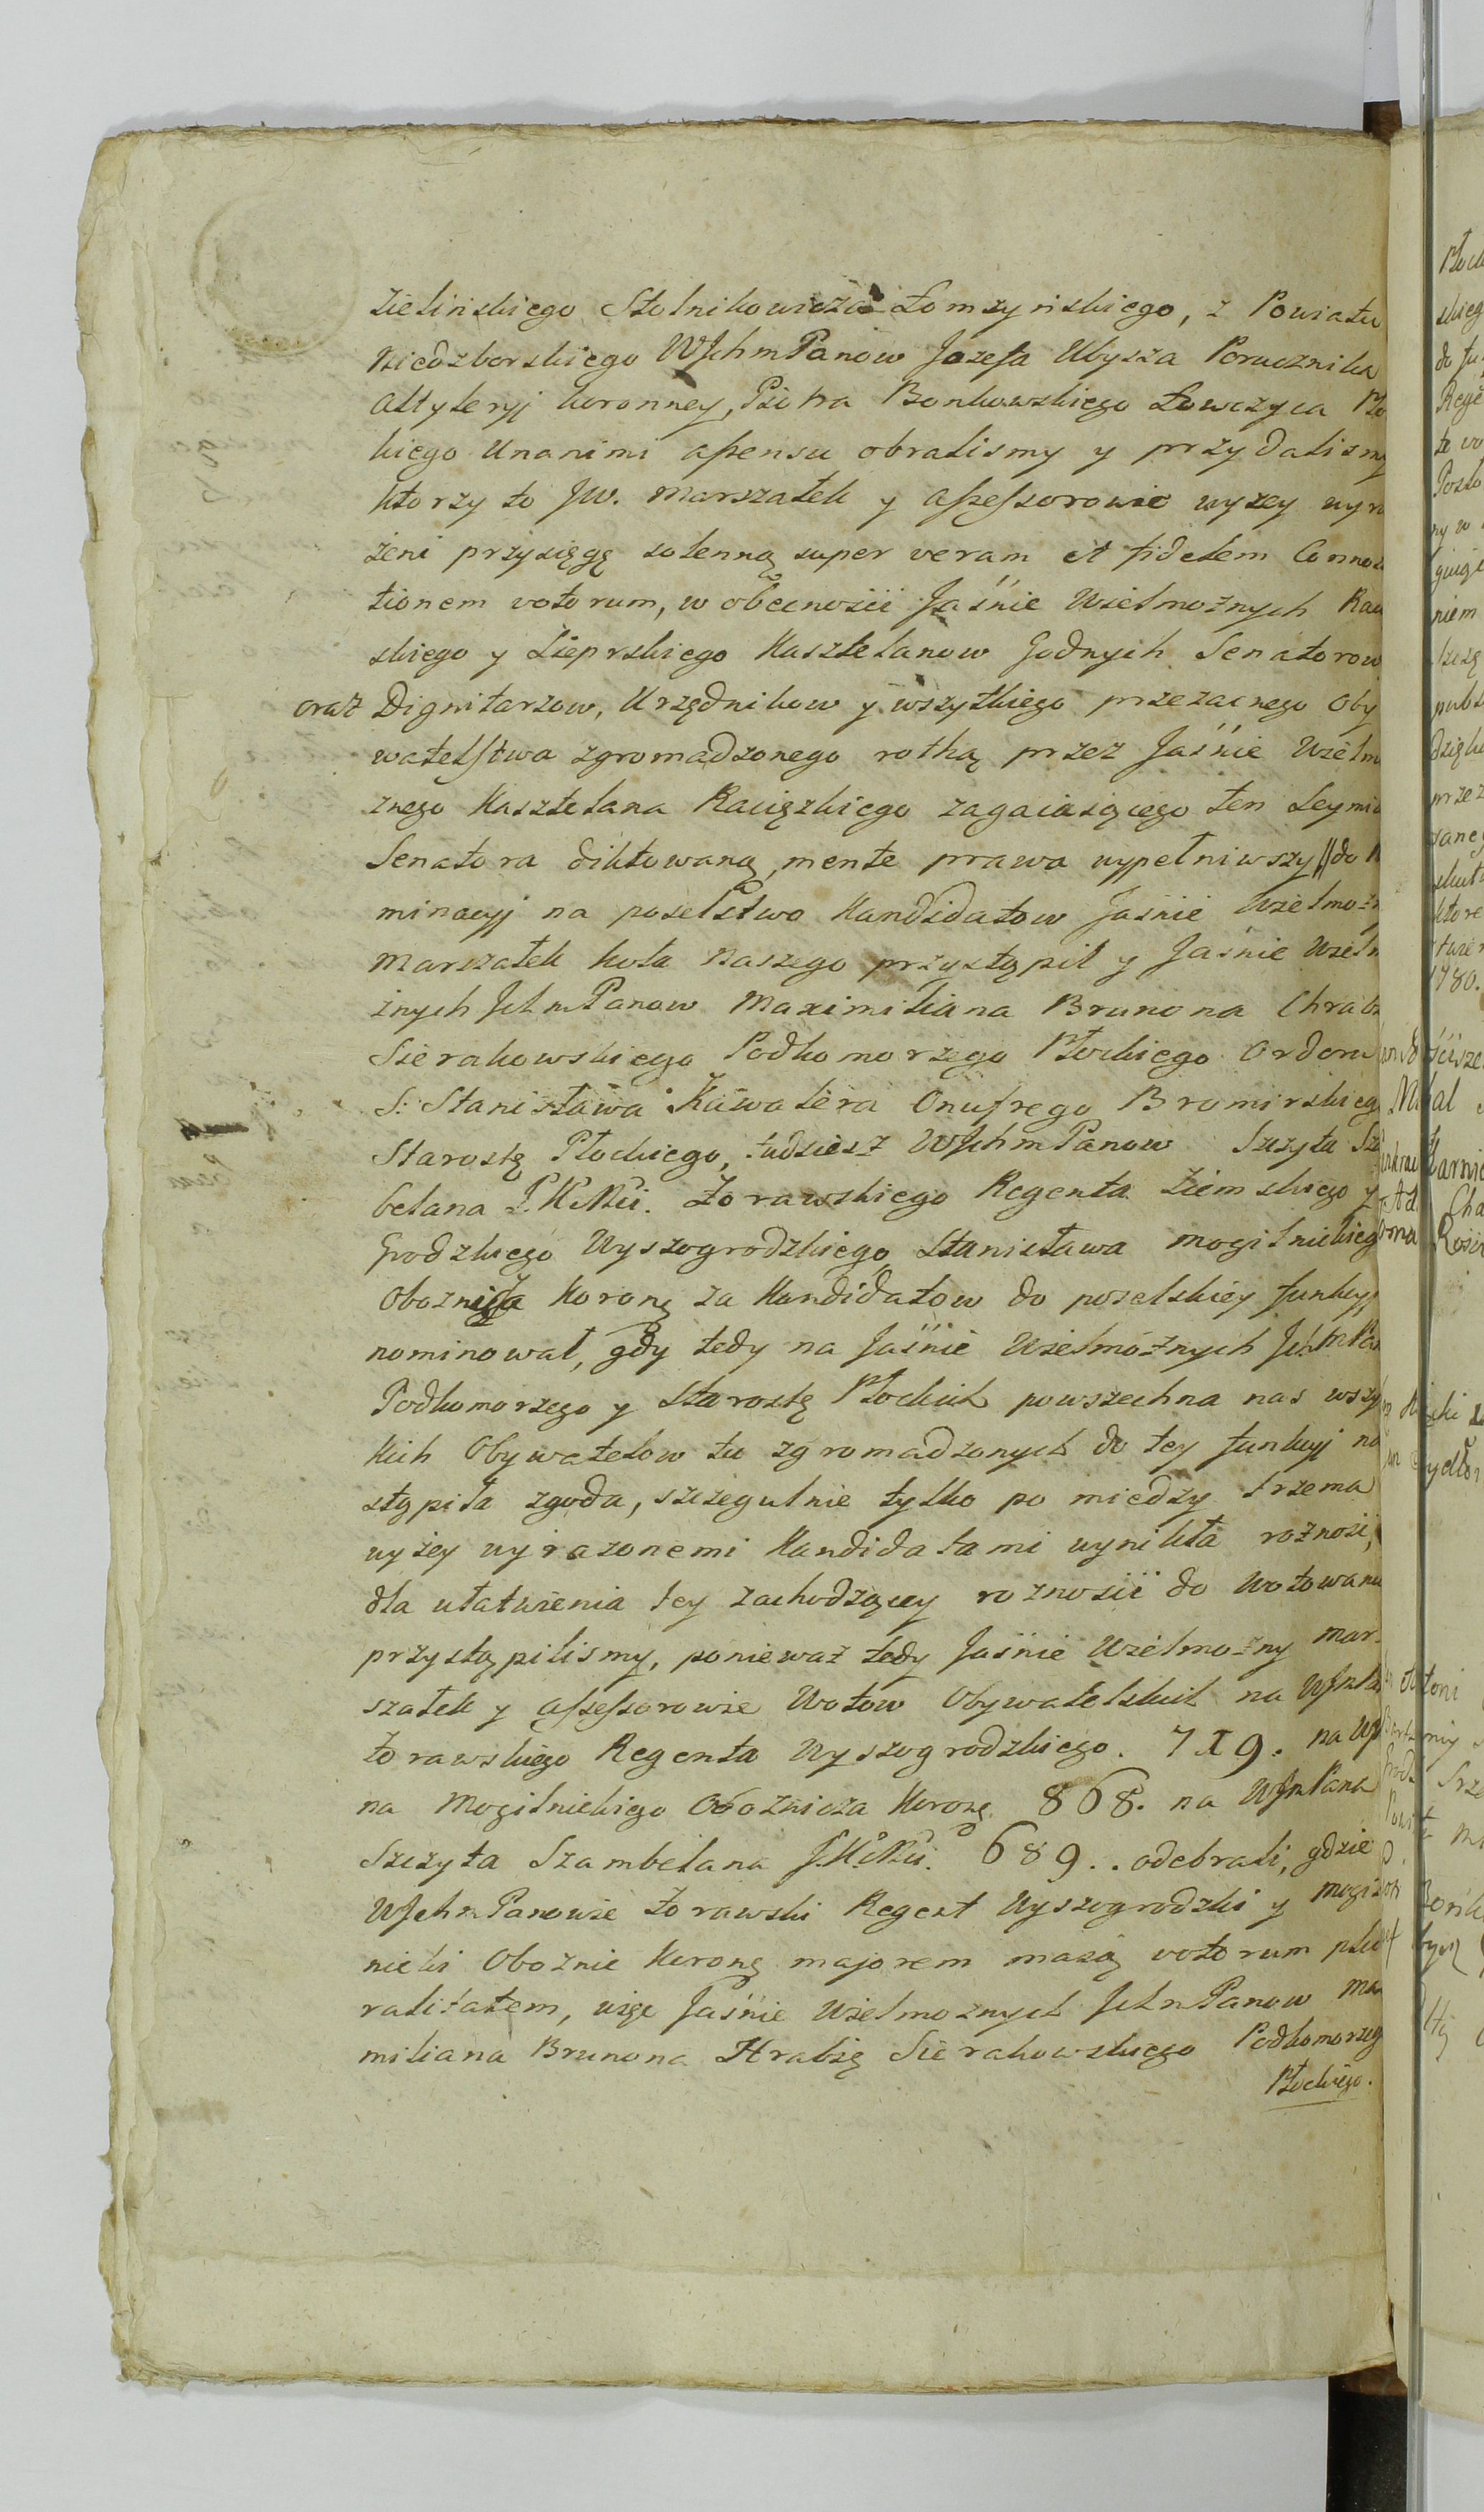 Zielińskiego Stolnikowicza Łomzyńskiego, z Powiatu
Niedzborskiego WJchmPanow Jozefa Ubysza Porucznika
Altyleryj koronney, Piotra Bonkowskiego Łowczyca Pło
kiego Unanimi assensu obralismy y przydalismy
ktorzy to JW. Marszałek y assessorowie wyzey wyra
żeni przysięgę solenną super veram et fidelem Connota
tionem votorum, w obecnosci Jaśnie Wielmożnych Rac
skiego y Sieprskiego Kasztelanow Godnych Senatorow
oraz Dignitarzow, Urzędnikow y wszytkiego przezacnego Oby
watelstwa zgromadzonego rothą przez Jaśnie Wielm
znego Kasztelana Raciązkiego zagaiaiącego ten Seymi
Senatora diktowaną, mente prawa wypełniwszy || do N
minacyj na poselstwo Kandidatow Jaśnie Wielmożn
Marszałek koła Naszego przystąpił y Jaśnie Wielm
żnych JchmPanow Maximiliana Brunona Chrab
Sierakowskiego Podkomorzego Płockiego Orderu
S: Stanisława Kawalera Onufrego Bromirskieg
Starostę Płockiego, tudziesz WJchmPanow Szczyta Sza
belana J.K.Mci. Żorawskiego Regenta Ziemskiego y
Grodzkiego Wyszogrodzkiego Stanisława Mogilnickieg
Oboznica Koronę za Kandidatow do poselskiey funkcyj
nominował, gdy tedy na Jaśnie Wielmożnych JchmPan
Podkomorzego y Starostę Płockich powszechna nas wszy
kich Obywatelow tu zgromadzonych do tey funkcyj na
stąpiła zgoda, szczegulnie tylko po miedzy trzema
wyżey wyrazonemi Kandidatami wynikła rożnosć,
dla ułatwienia tey zachodzącey roznosci do wotowania
przystąpilismy, ponieważ tedy Jaśnie Wielmożny Mar-
szałek y assessorowie Wotow Obywatelskich na WJmPa
Żorawskiego Regenta Wyszogrodzkiego. 719. na WJ
na Mogilnickiego Oboznicza Koronę 868. na WJmPana
Szczyta Szambelana J.K.Mci. 689. . odebrali, gdzie
WJchmPanowie Żorawski Regent Wyszogrodzki y Mogil
nicki Oboznic Koronę majorem maią votorum plu
ralitatem, więc Jaśnie Wielmoznych JchmPanow Ma
miliana Brunona Hrabię Sierakowskiego Podkomorzeg
Płockiego.